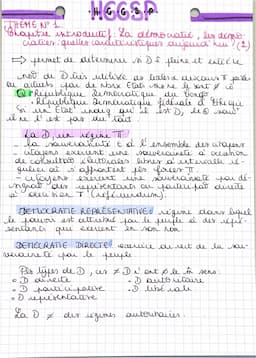 HGGSP
THÈME N° 1
Chapitre introductif : La démocratie, les démo-
craties : quelles caractéristiques aujourd'hui ? (2)
⇒ permet de déterminer si D
mot de D très utilisé
ou ailleurs par de
République Démocratique du Congo
• République démocratique fédérale d'Éthiopie
Si un État indiq qu'il est D,
il ne l'est pas du tout
La D, un régime π
- La souveraineté à l'ensemble des citoyens
- citoyens exercent une souveraineté à occasion
de consultat électorales libres à intervalle ré-
guliers et s'affrontent pls forces π
- citoyens exercent une souveraineté par dé-
signat des représentants ou participat directe
(référendum).
DÉMOCRATIE REPRÉSENTATIVE : régime dans lequel
le pouvoir est attribué par le peuple à des repré-
sentants qui exercent en son nom
DÉMOCRATIE DIRECTE : exercice direct de la sou-
veraineté par le peuple
Pls types de D, ces ≠ D n'ont pas le m sens :
• D directe
• D autoritaire
• D participative
• D libérale
• D représentative
La D ≠ des régimes autoritaires.